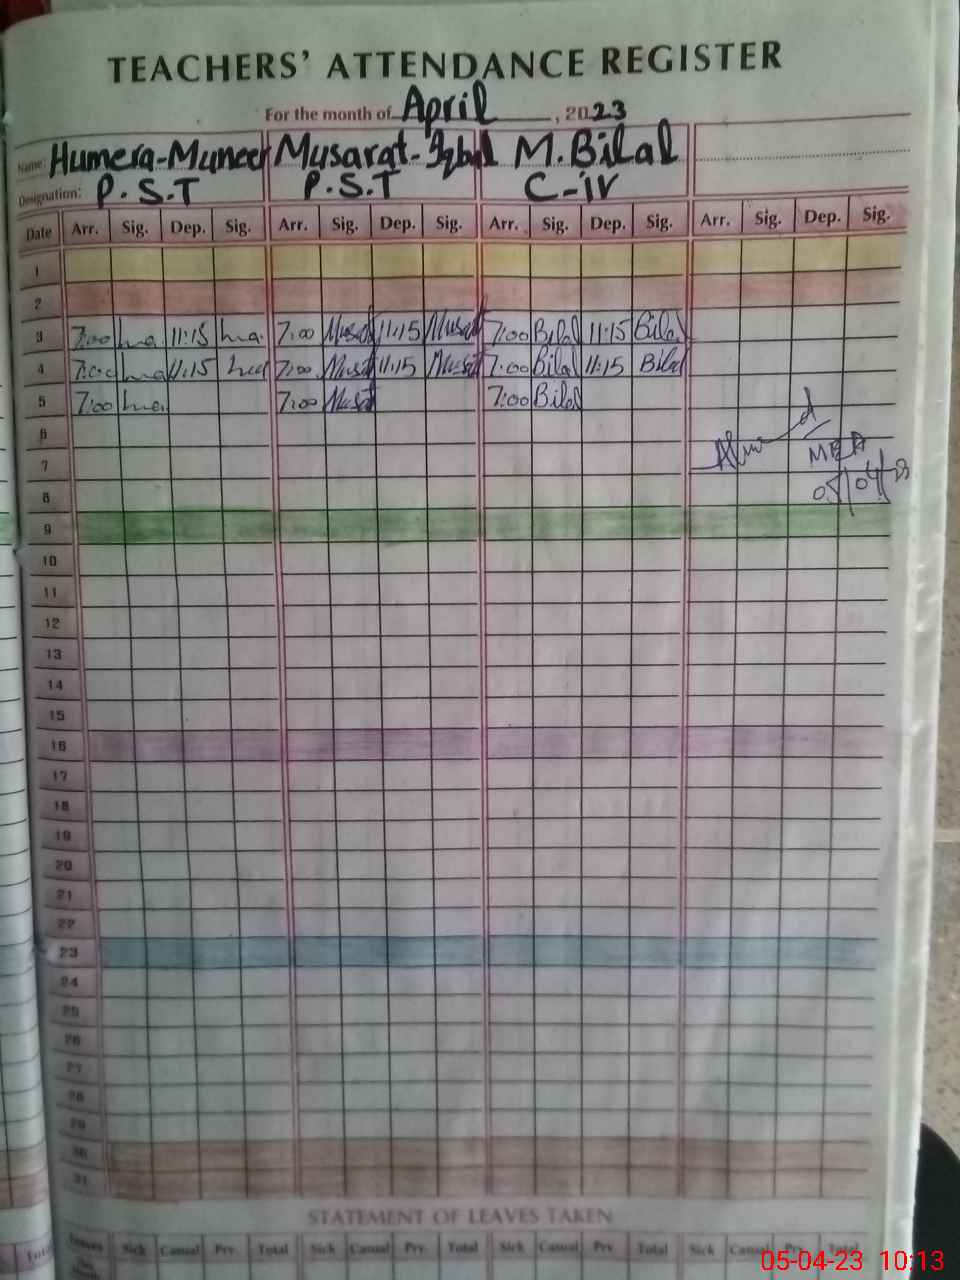 TEACHERS' ATTENDANCE REGISTER
For the month of April, 2023
Name: Humera-Muneer Musarat-Iqbal M.Bilal
Designation: P.S.T P.S.T C-iv
Date Arr. Sig. Dep. Sig. Arr. Sig. Dep. Sig. Arr. Sig. Dep. Sig. Arr. Sig. Dep. Sig.
1
2
3 7:00 11:15 7:00 Musat 11:15 Musat 7:00 Bilal 11:15 Bilal
4 7:00 11:15 7:00 Musat 11:15 Musat 7:00 Bilal 11:15 Bilal
5 7:00 7:00 Musat 7:00 Bilal
6
7 MEA
8 05/04/23
9
10
11
12
13
14
15
16
17
18
19
20
21
22
23
24
25
26
27
28
29
30
31
STATEMENT OF LEAVES TAKEN
Leaves Sick Casual Prv. Total Sick Casual Prv. Total Sick Casual Prv. Total Sick Casual Prv. Total
05-04-23 10:13